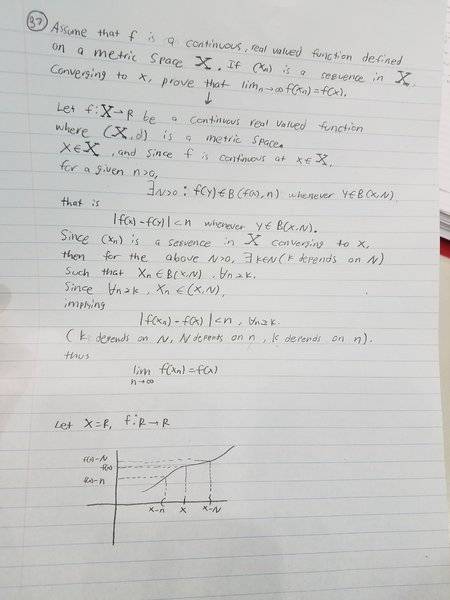 37 Assume that f is a continuous, real valued function defined
on a metric space X. If (xn) is a sequence in X
converging to x, prove that lim n→∞ f(xn)=f(x).
↓
Let f:X→R be a continuous real valued function
where (X,d) is a metric space.
x∈X, and since f is continuous at x∈X,
for a given n>0,
∃N>0 : f(y)∈B(f(x),n) whenever y∈B(x,N)
that is
|f(x)-f(y)|<n whenever y∈B(x,N).
Since (xn) is a sequence in X converging to x,
then for the above N>0, ∃k∈N (k depends on N)
such that xn∈B(x,N), ∀n≥k.
Since ∀n≥k, xn∈(x,N),
implying
|f(xn)-f(x)|<n, ∀n≥k.
(k depends on N, N depends on n, k depends on n).
thus
lim n→∞ f(xn)=f(x)
Let X=R, f:R→R
f(x)-N
f(x)
f(x)-n
x-n x x-N